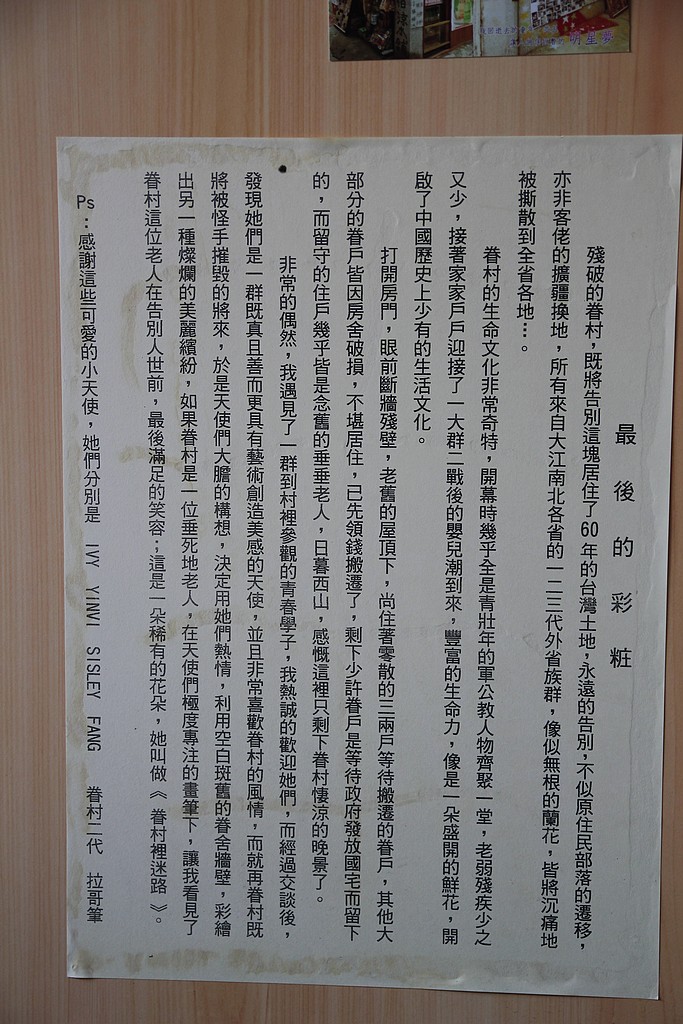 明星夢
最後的彩粧
殘破的眷村，既將告別這塊居住了60年的台灣土地，永遠的告別，不似原住民部落的遷移，
亦非客佬的擴疆換地，所有來自大江南北各省的一二三代外省族群，像似無根的蘭花，皆將沉痛地
被撕散到全省各地…。
眷村的生命文化非常奇特，開幕時幾乎全是青壯年的軍公教人物齊聚一堂，老弱殘疾少之
又少，接著家家戶戶迎接了一大群二戰後的嬰兒潮到來，豐富的生命力，像是一朵盛開的鮮花，開
啟了中國歷史上少有的生活文化。
打開房門，眼前斷牆殘壁，老舊的屋頂下，尚住著零散的三兩戶等待搬遷的眷戶，其他大
部分的眷戶皆因房舍破損，不堪居住，已先領錢搬遷了，剩下少許眷戶是等待政府發放國宅而留下
的，而留守的住戶幾乎皆是念舊的垂垂老人，日暮西山，感慨這裡只剩下眷村悽涼的晚景了。
非常的偶然，我遇見了一群到村裡參觀的青春學子，我熱誠的歡迎她們，而經過交談後，
發現她們是一群既真且善而更具有藝術創造美感的天使，並且非常喜歡眷村的風情，而就再眷村既
將被怪手摧毀的將來，於是天使們大膽的構想，決定用她們熱情，利用空白斑舊的眷舍牆壁，彩繪
出另一種燦爛的美麗繽紛，如果眷村是一位垂死地老人，在天使們極度專注的畫筆下，讓我看見了
眷村這位老人在告別人世前，最後滿足的笑容；這是一朵稀有的花朵，她叫做《眷村裡迷路》。
Ps：感謝這些可愛的小天使，她們分別是 IVY YiNVI SISLEY FANG 眷村二代 拉哥筆